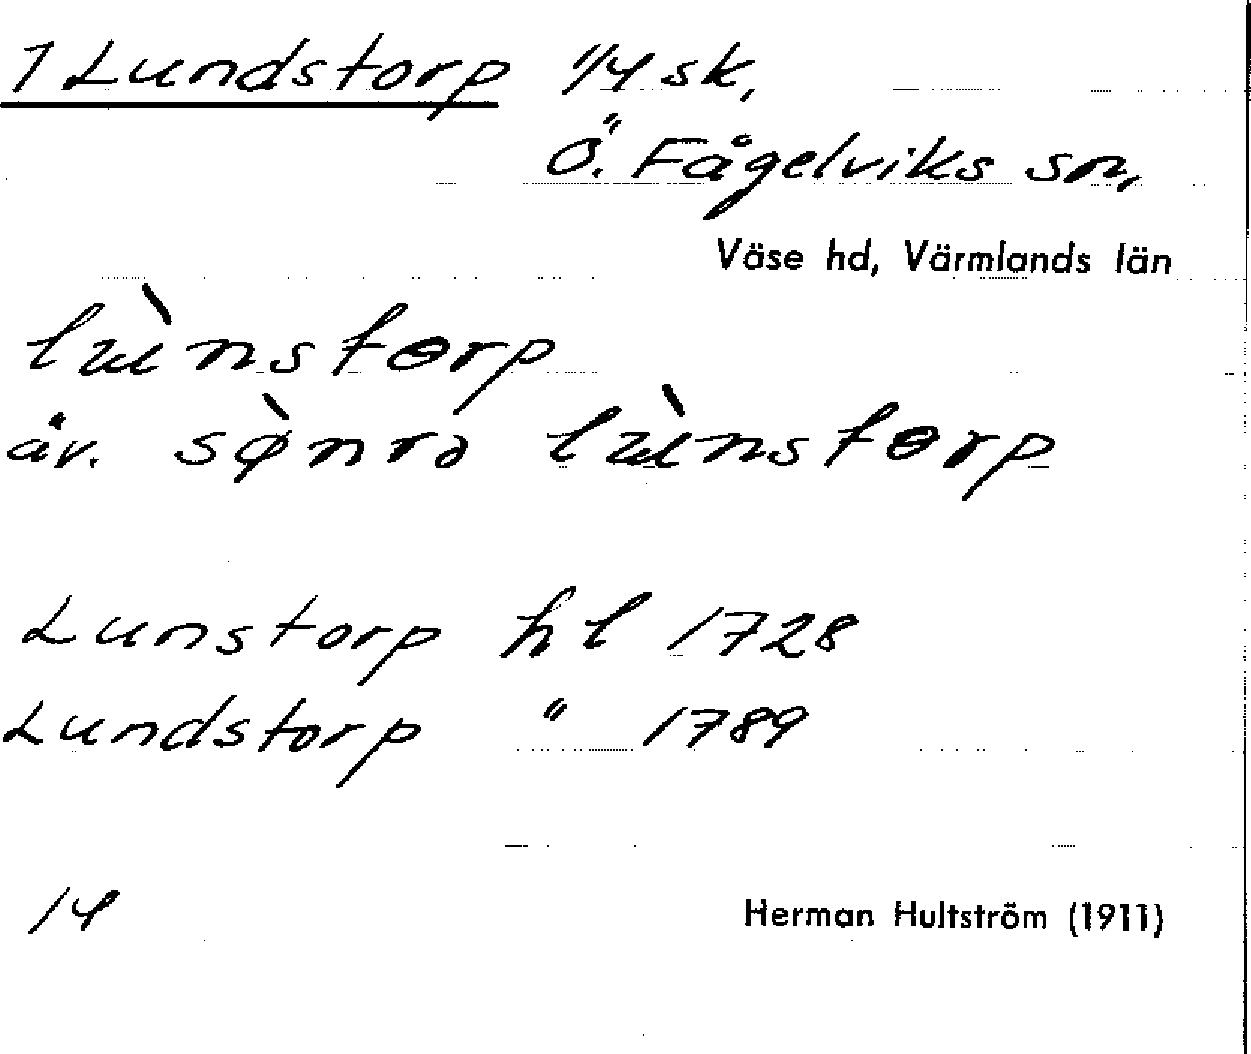 1 Lundstorp 1/4 sk,
Ö. Fågelviks sn,
Väse hd, Värmlands län
lùnstɵrp
äv. sø̀nrə lùnstɵrp
Lunstorp hl 1728
Lundstorp " 1789
14
Herman Hultström (1911)